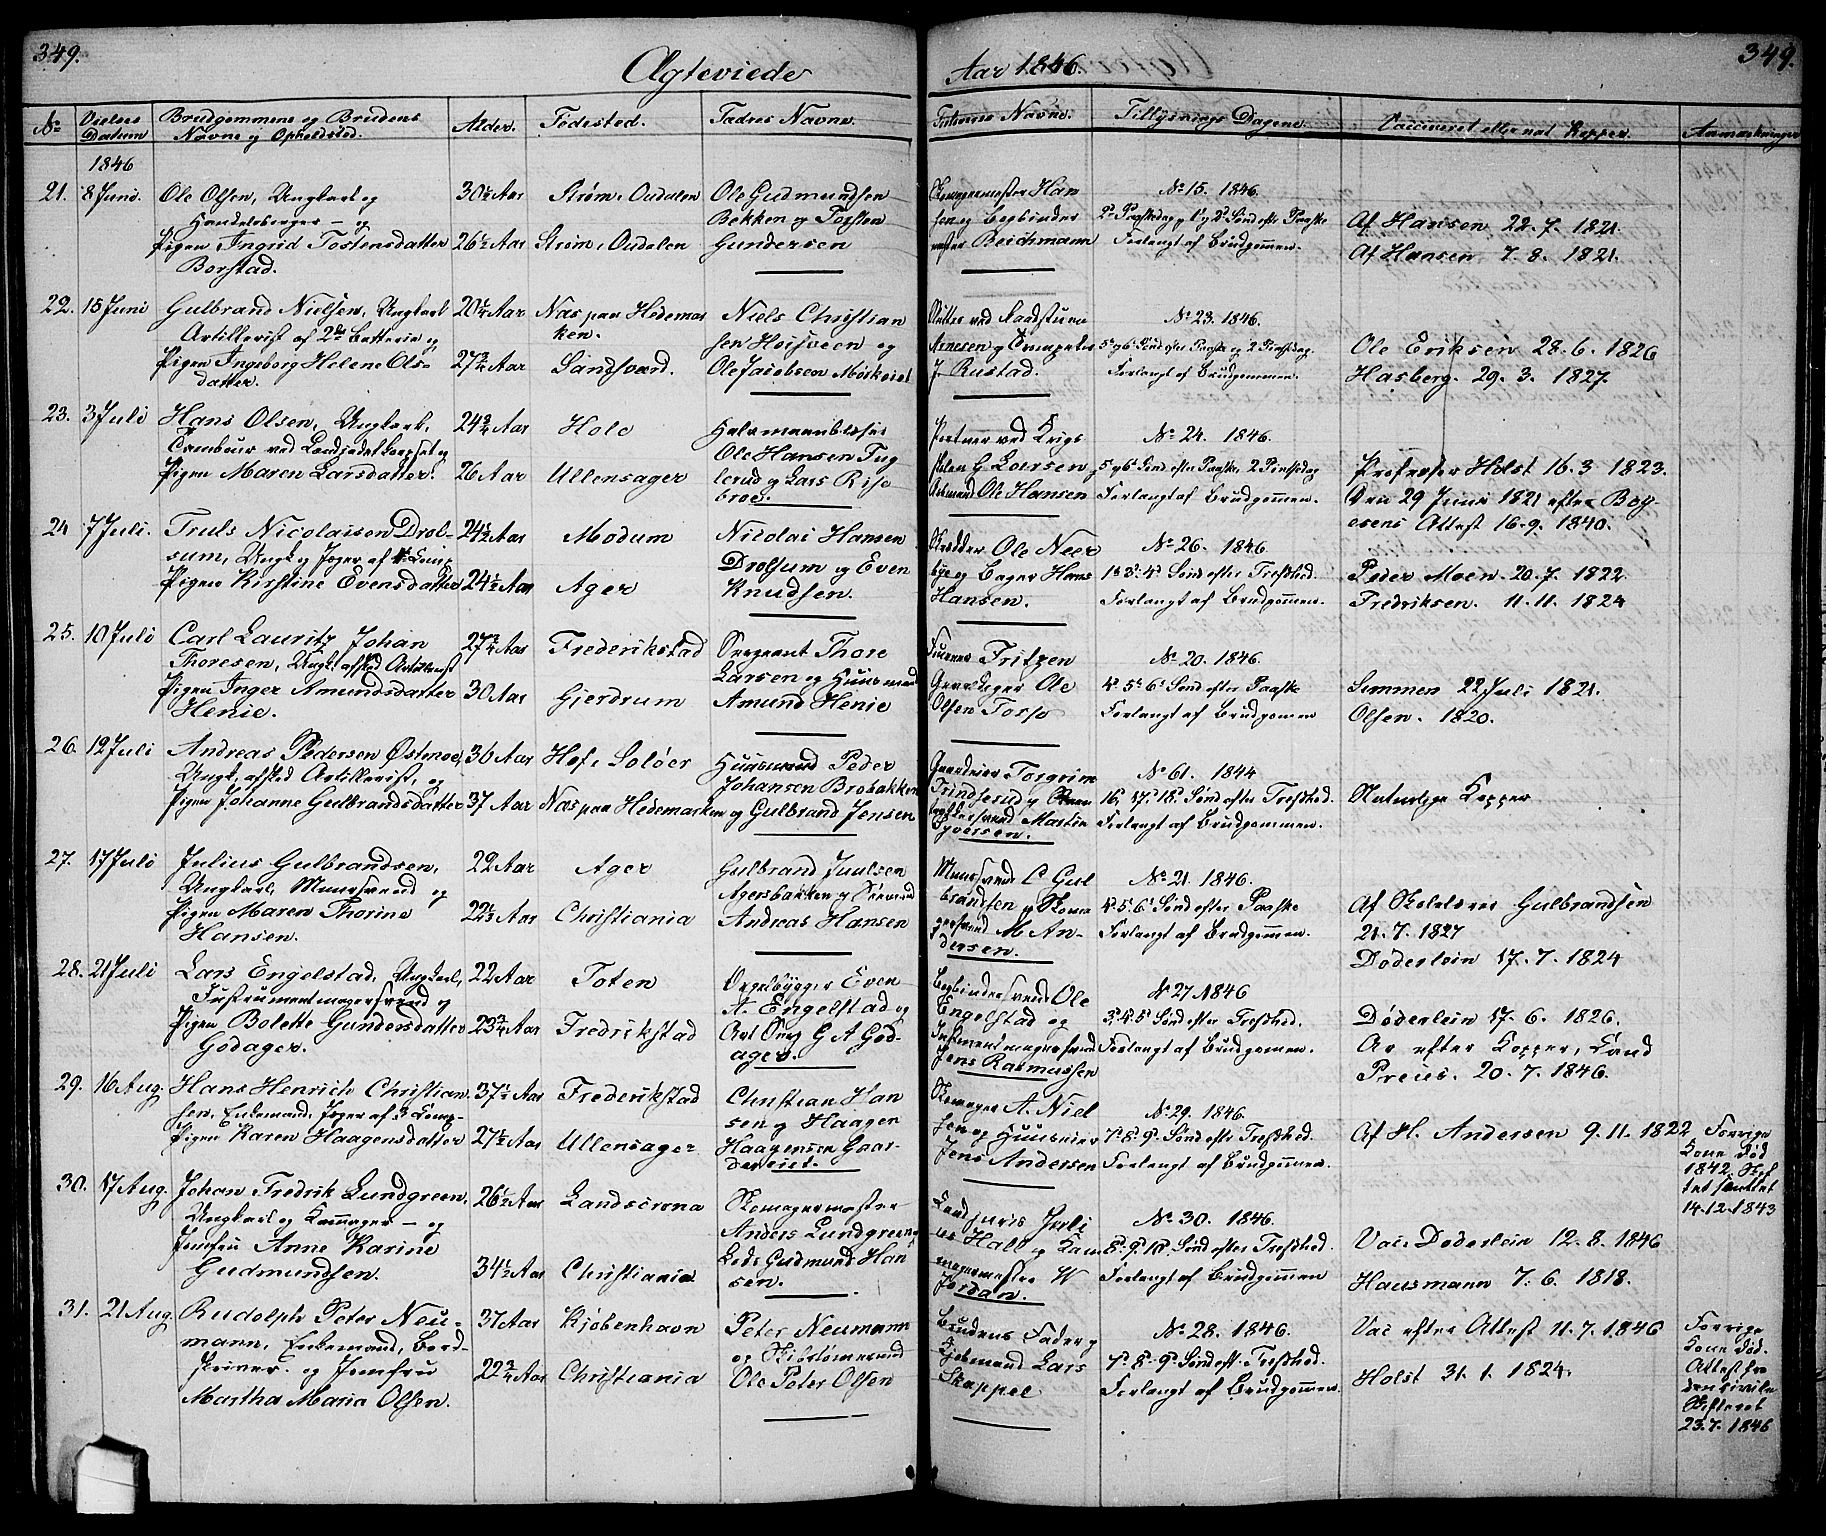 349.
Ægteviede
Aar 1846.
349.
No
Vielses Datum
Brudgommens og Brudens Navne og Opholdsted.
Alder.
Födested.
Fadres Navne.
Forlovernes Navne.
Tillysnings Dagene.
Vaccineret eller nat. Kopper.
Anmærkninger
1846
21. 8 Juni.
Ole Olsen, Ungkarl og
Handelsborger – og
Pigen Ingrid Tostensdatter
Borstad.
30½ Aar
26½ Aar
Strøm, Oudalen
Strøm, Oudalen
Ole Gudmundsen
Bakken og Tosten
Gundersen
Skomagermester Han
sen og Bogbinder
mester Beichmann
No 15. 1846.
2d Paaskedag og 1 og 2d Sönd. efter Paaske
Forlangt af Brudgommen.
Af Hansen 22. 7. 1821.
Af Hansen 7. 8. 1821.
22. 15 Juni
Gulbrand Nielsen, Ungkarl
Artillerist af 2det Batterie og
Pigen Ingeborg Helene Ols-
datter.
20¼ Aar
27¾ Aar
Næs paa Hedemar
ken.
Sandsværd.
Niels Christian
sen Hoisveen og
Ole Jacobsen Mørkeiet
Arnesen og Trompeter
J. Rustad.
No 23. 1846.
5 og 6 Sönd. efter Paaske og 2 Pintsedag
Forlangt af Brudgommen.
Ole Eriksen 28. 6. 1826
Hasberg. 29. 3. 1827.
23. 3 Juli
Hans Olsen, Ungkarl,
Tambour ved Landcadetkorpset og
Pigen Maren Larsdatter.
24¾ Aar
26 Aar
Hole
Ullensager
Ole Hansen Fug
lerud og Lars Rise
broe.
Portner ved Krigs
skolen G. Larsen
Ole Hansen
No 24. 1846.
5 og 6 Sönd. efter Paaske, 2 Pintsedag
Forlangt af Brudgommen.
Professor Holst 16. 3 1823.
Den 29 Juni 1821 efter Boy
esens Attest 16. 9. 1840.
24 7 Juli.
Truls Nicolaisen Drol-
sum, Ungk. og Jæger af
Pigen Kirstine Evensdatter
24½ Aar
24½ Aar
Modum
Ager
Nicolai Hansen
Drolsum og Even
Knudsen.
Skredder Ole Neer
bye og Bager Hans
Hansen.
No 26. 1846
1. 3. 4. Sönd. efter Trefoldhed.
Forlangt af Brudgommen.
Peder Moen. 20. 7. 1822.
Fredriksen. 11. 11. 1824
25. 10 Juli
Carl Lauritz Johan
Thoresen, Ungk. afsked Artillerist
Pigen Inger Amundsdatter
Henie.
27¾ Aar
30 Aar
Frederikstad
Gjerdrum
Sergeant Thore
Larsen og Huusmand
Amund Henie
Fritzen
Ole
Olsen Torsø
No 20. 1846.
4. 5. 6. Sönd. efter Paaske
Forlangt af Brudgommen
Simmen 22 Juli 1821.
Olsen. 1820.
26. 12 Juli
Andreas Pedersen Østmoe,
Ungk. afsked Artillerist, og
Pigen Johanne Gulbrandsdatter
36 Aar
37 Aar
Hof, Solöer
Næs paa Hedemarken
Huusmand Peder
Johansen Brobakken
og Gulbrand Jensen
Torgrim
Martin
Iversen.
No 61. 1844
16, 17. 18. Sönd efter Trefoldhed.
Forlangt af Brudgommen.
Naturlige Kopper
27. 17 Juli
Julius Gulbrandsen,
Ungkarl, Muursvend og
Pigen Maren Thorine
Hansen.
22 Aar
22½ Aar
Ager
Christiania
Gulbrand Juulsen
Agersbakken og
Andreas Hansen
Muursvend C. Gul
brandsen og Skoma
gersvend M An-
dersen.
No 21. 1846.
4. 5. 6. Sönd efter Paaske
Forlangt af Brudgommen.
Af Skolelærer Gulbrandsen
21. 7. 1827
Døderlein 17. 7. 1824
28. 21 Juli
Lars Engelstad, Ungkarl,
Instrumentmagersvend og
Pigen Bolette Gundersdatter
Godager.
22 Aar
23¾ Aar
Toten
Fredrikstad
Orgelbygger Even
A. Engelstad og
G A God-
ager.
Bogbindersvend Ole
Engelstad og
Instrumentmagersvend
Jens Rasmussen
No 27 1846
3. 4. 5. Sönd efter Trefoldhed.
Forlangt af Brudgommen.
Døderlein 17. 6. 1826.
Ar efter Kopper, Cand
Preus. 20. 7. 1846.
29. 16 Aug.
Hans Henrich Christian
sen, Enkemand, Jæger af 3 Comp.
Pigen Karen Haagensdatter
37½ Aar
27½ Aar
Frederikstad
Ullensager
Christian Han
sen og Haagen
Haagensen Gaar
dereiet.
Skomager A. Niel
sen og Huuseier
Jens Andersen
No 29. 1846.
7. 8. 9. Sönd efter Trefoldhed.
Forlangt af Brudgommen.
Af H. Andersen 9. 11. 1822
Forrige
Kone død
1842. Skif
tet sluttet
14. 12. 1843
30. 17 Aug.
Johan Fredrik Lundgreen,
Ungkarl og Skomager – og
Jomfru Anne Karine
Gudmundsen.
26½ Aar
34½ Aar
Landscrona
Christiania
Skomagermester
Anders Lundgreen og
Lods Gudmund Han
sen.
Cand juris Juli
us Hall og Kam
magermester W
Jordan.
No 30. 1846.
8. 9. 10. Sönd efter Trefoldhed.
Forlangt af Brudgommen
Vac. Døderlein 12. 8. 1846
Hausmann 7. 6. 1818.
31. 21 Aug.
Rudolph Peter Neu-
mann, Enkemand,
og Jomfru
Martha Maria Olsen.
37 Aar
22¾ Aar
Kjöbenhavn
Christiania
Peter Neumann
og
Ole Peter Olsen
Brudens Fader og
Kjöbmand Lars
Skappel
No 28. 1846.
7. 8. 9. Sönd eft. Trefoldhed.
Forlangt af Brudgommen.
Vac efter Attest 11. 7. 1846
Holst 31. 1. 1824.
Forrige
Kone död.
Attest fra
den civile
Skifteret
23. 7. 1846